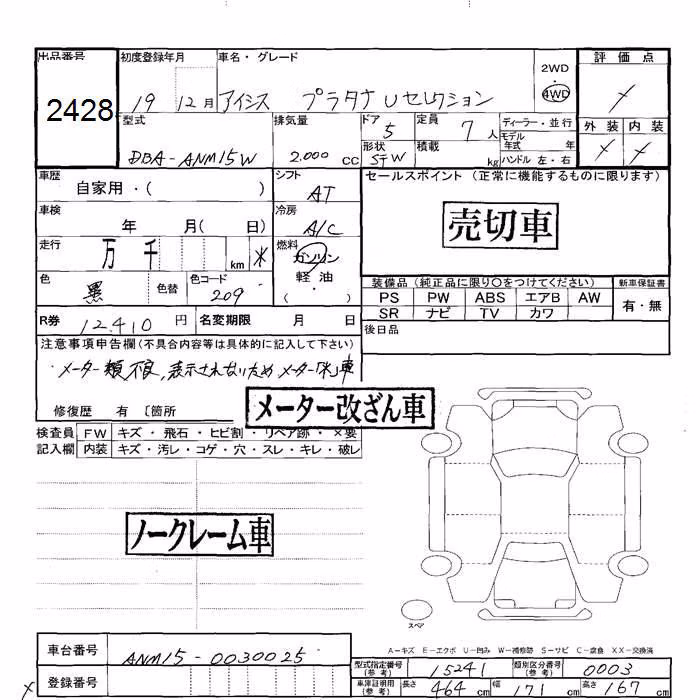 出品番号 初度登録年月 車名・グレード 2WD 評価点
2428 19 12月 アイシス プラタナ Uセレクション 4WD
型式 排気量 ドア 5 定員 7 人 ディーラー・並行 外装 内装
モデル年式 年
DBA-ANM15W 2.000 CC 形状 STW 積載 kg ハンドル 左・右
車歴 シフト セールスポイント (正常に機能するものに限ります)
自家用・( ) AT
車検 冷房
年 月( 日) A/C 売切車
走行 万 千 km 燃料 ガソリン
軽油
( ・ )
色 黒 色替 色コード 209 装備品 (純正品に限り○をつけてください) 新車保証書
PS PW ABS エアB AW 有・無
SR ナビ TV カワ
R券 12.410 円 名変期限 月 日 後日品
注意事項申告欄(不具合内容等は具体的に記入して下さい)
・メーター類不良,表示されないため メーター「*」車
メーター改ざん車
修復歴 有 〔箇所
検査員 FW キズ・飛石・ヒビ割・リペア跡・×要
記入欄 内装 キズ・汚レ・コゲ・穴・スレ・キレ・破レ
ノークレーム車
スペア
A-キズ E-エクボ U-凹み W-補修跡 S-サビ C-腐食 XX-交換済
車台番号 ANM15-0030025 型式指定番号(参考) 15241 類別区分番号(参考) 0003
登録番号 車庫証明用(参考) 長さ 464 cm 幅 171 cm 高さ 167 cm